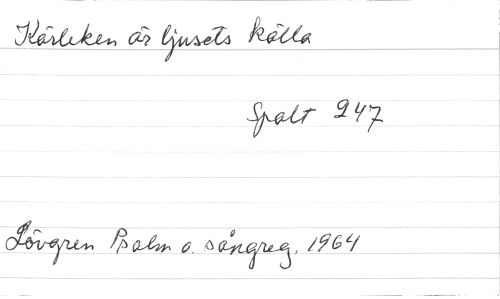 Kärleken är ljusets källa
Spalt 247
Lövgren Psalm o. sångreg. 1964